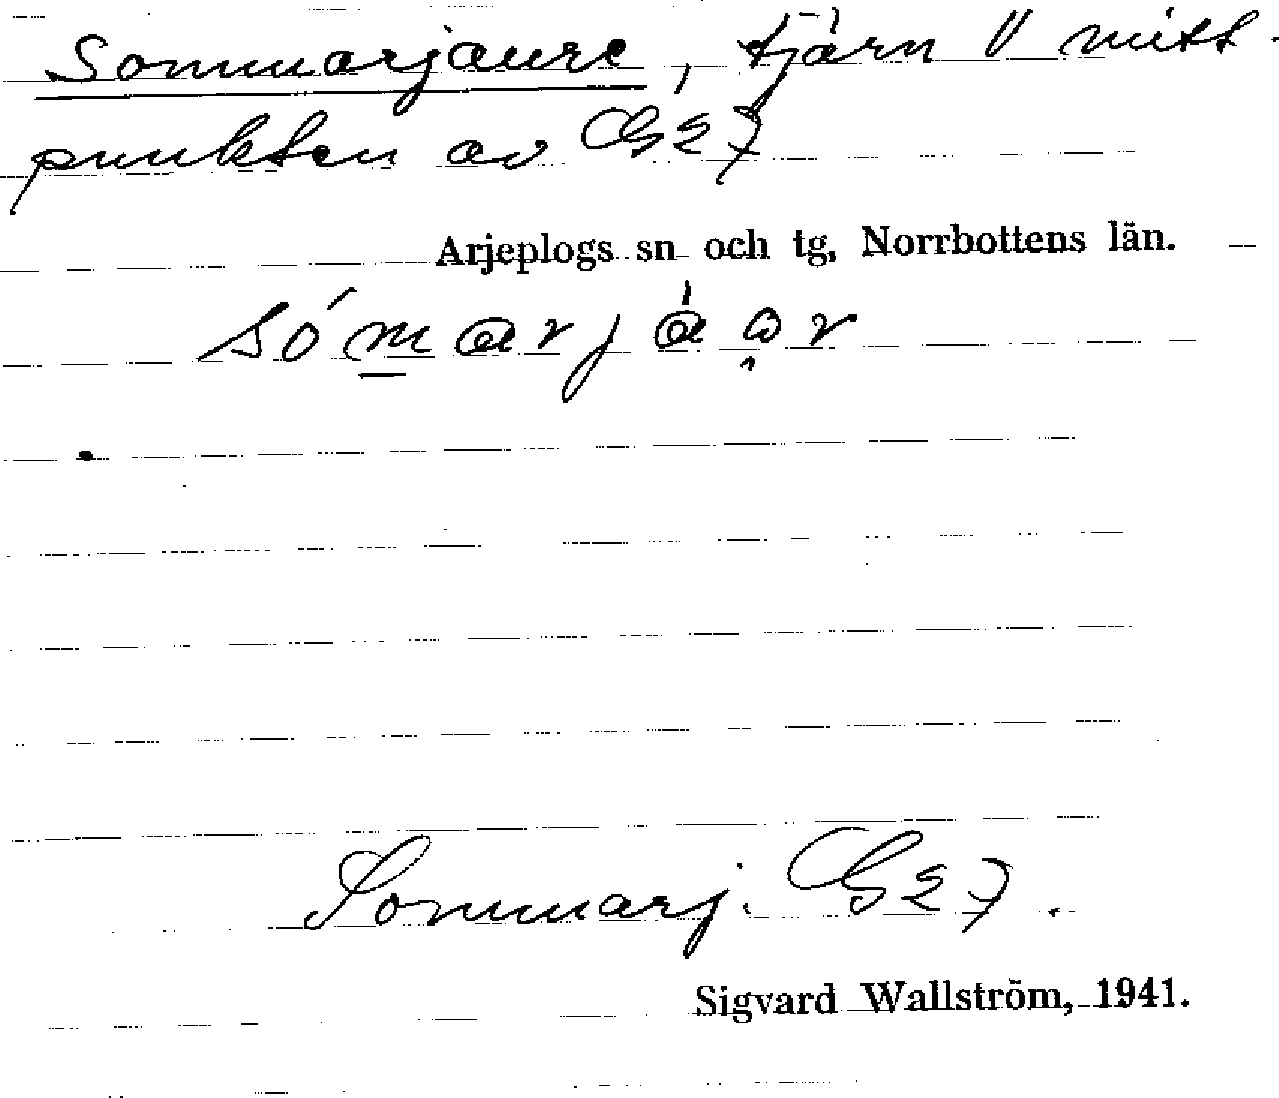 Sommarjaure, tjärn V mitt-
punkten av G27
Arjeplogs sn och tg, Norrbottens län.
Sommarj. G27.
Sigvard Wallström, 1941.